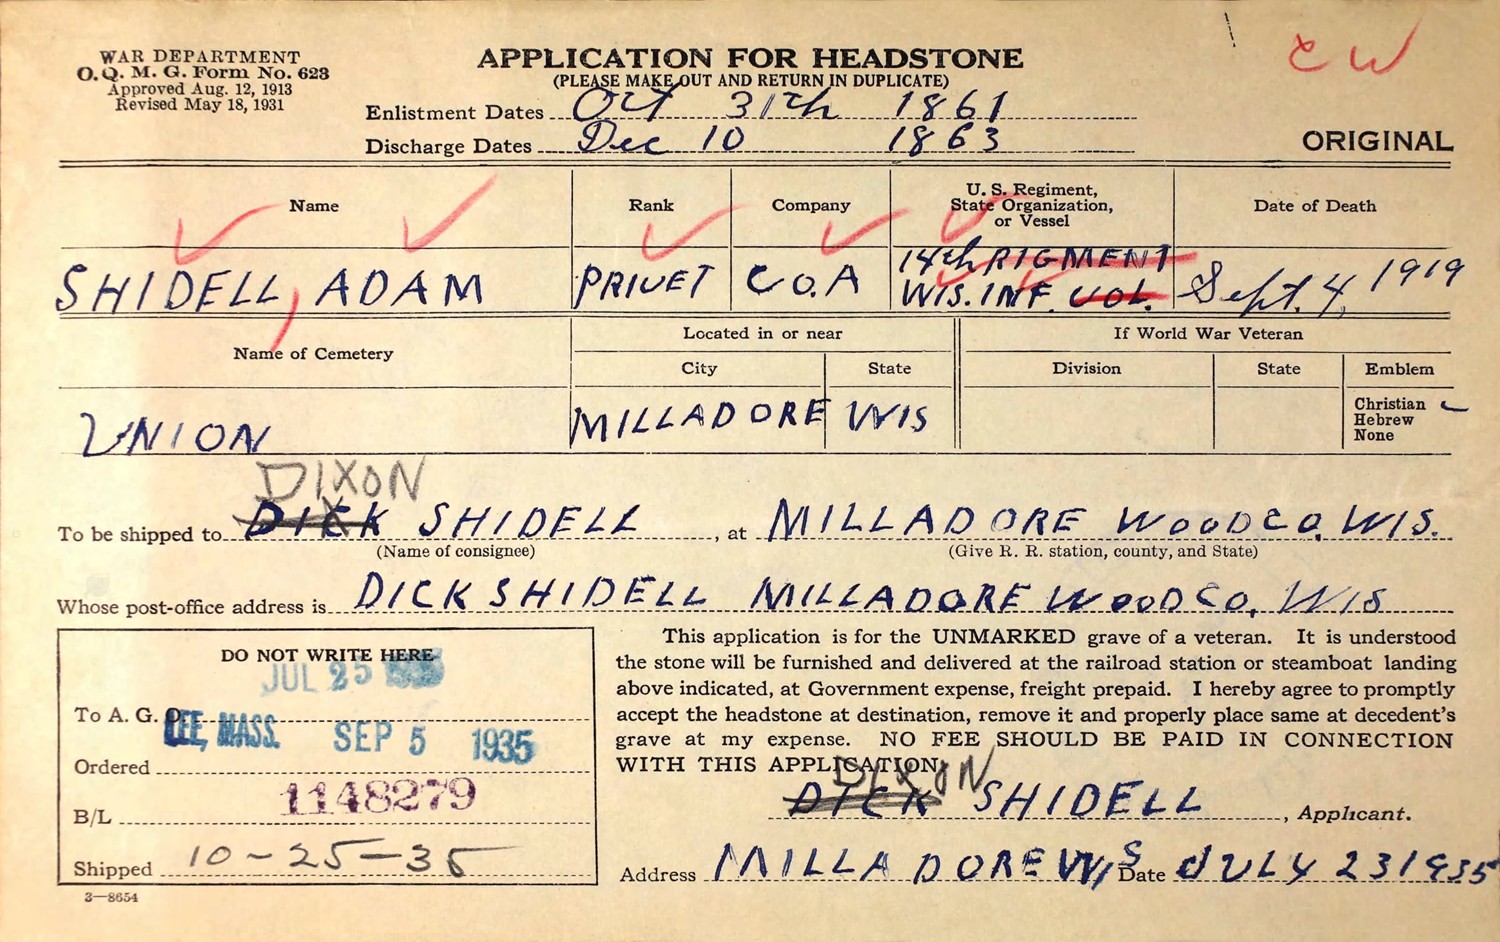 WAR DEPARTMENT
O. Q. M. G. Form No. 623
Approved Aug. 12, 1913
Revised May 18, 1931
APPLICATION FOR HEADSTONE
(PLEASE MAKE OUT AND RETURN IN DUPLICATE)
CW
Enlistment Dates Oct 31th 1861
Discharge Dates Dec 10 1863
ORIGINAL
Name Rank Company U. S. Regiment, State Organization, or Vessel Date of Death
SHIDELL, ADAM PRIVET CO. A 14th RIGMENT Sept. 4, 1919
WIS. INF. VOL.
Name of Cemetery Located in or near If World War Veteran
City State Division State Emblem
UNION MILLADORE WIS
Christian
Hebrew
None
DIXON
To be shipped to DICK SHIDELL, at MILLADORE WOOD CO, WIS.
(Name of consignee) (Give R. R. station, county, and State)
Whose post-office address is DICK SHIDELL MILLADORE WOOD CO, WIS
DO NOT WRITE HERE
JUL 25
To A. G. O.
LEE, MASS. SEP 5 1935
Ordered
1148279
B/L
Shipped 10-25-35
3—8654
This application is for the UNMARKED grave of a veteran. It is understood
the stone will be furnished and delivered at the railroad station or steamboat landing
above indicated, at Government expense, freight prepaid. I hereby agree to promptly
accept the headstone at destination, remove it and properly place same at decedent's
grave at my expense. NO FEE SHOULD BE PAID IN CONNECTION
WITH THIS APPLICATION.
DIXON
DICK SHIDELL, Applicant.
Address MILLADORE WIS Date JULY 23 1935